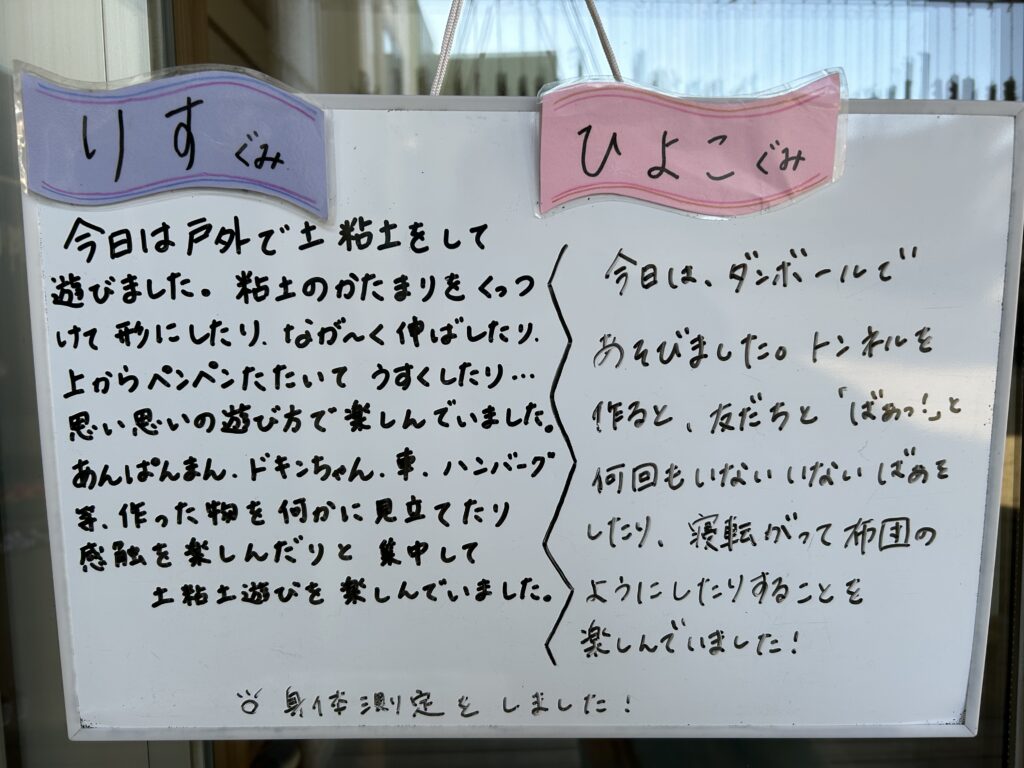 りすぐみ
今日は戸外で土粘土をして
遊びました。粘土のかたまりをくっつ
けて形にしたり、なが〜く伸ばしたり、
上からペンペンたたいてうすくしたり…
思い思いの遊び方で楽しんでいました。
あんぱんまん、ドキンちゃん、車、ハンバーグ
等、作った物を何かに見立てたり
感触を楽しんだりと集中して
土粘土遊びを楽しんでいました。
ひよこぐみ
今日は、ダンボールで
あそびました。トンネルを
作ると、友だちと「ばあっ!」と
何回もいないいないばあを
したり、寝転がって布団の
ようにしたりすることを
楽しんでいました!
身体測定をしました!